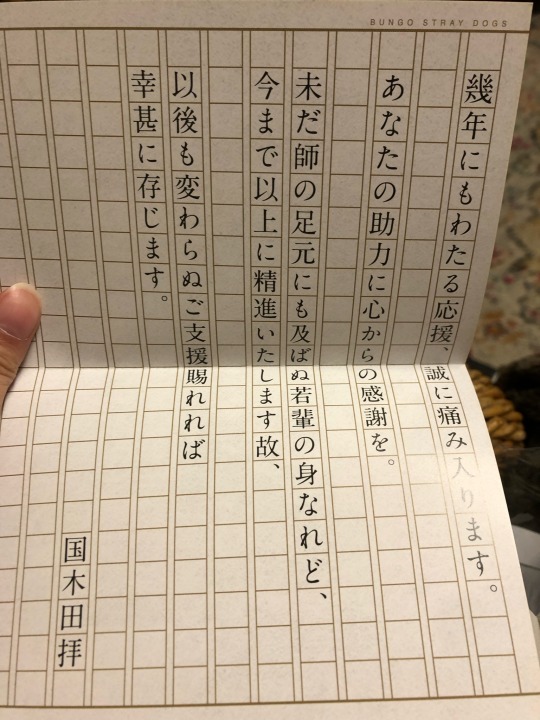 BUNGO STRAY DOGS
幾年にもわたる応援、誠に痛み入ります。
あなたの助力に心からの感謝を。
未だ師の足元にも及ばぬ若輩の身なれど、
今まで以上に精進いたします故、
以後も変わらぬご支援賜れれば
幸甚に存じます。
国木田拝